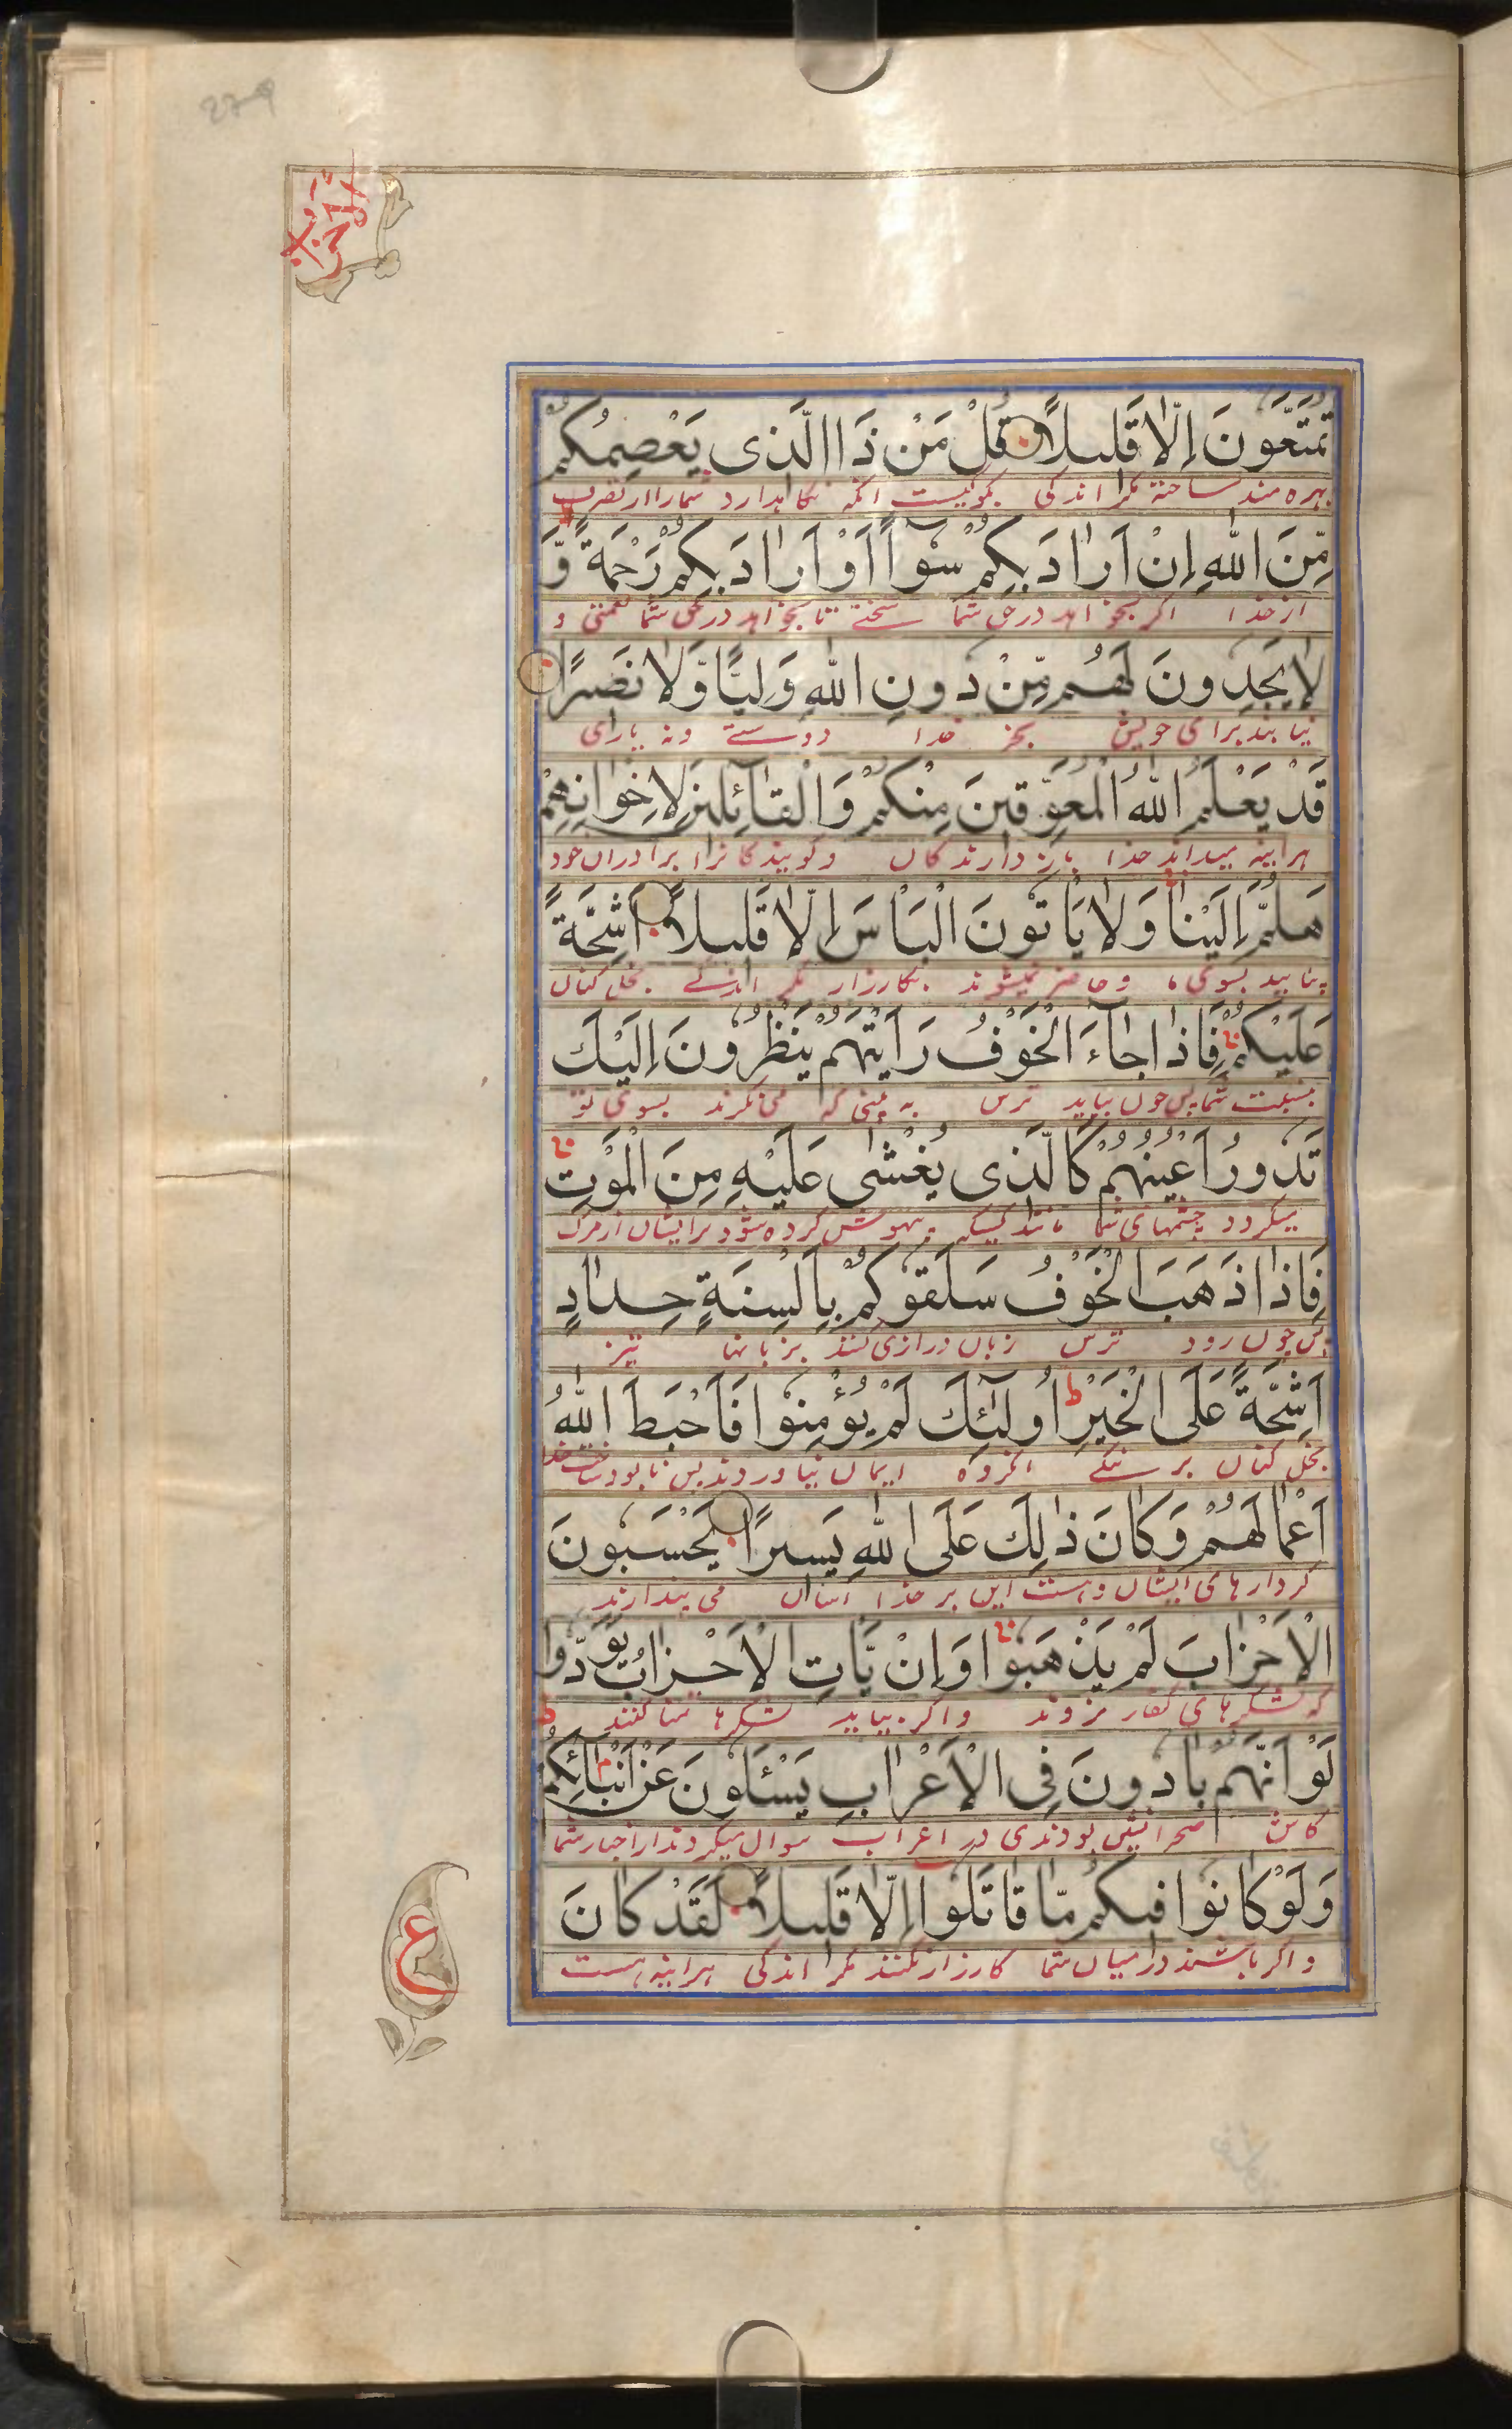 279
الاحزاب
تُمَتَّعُونَ اِلّٰا قَلیلًا قُلْ مَنْ ذَا الَّذی یَعْصِمُکُمْ
بهره مند ساخته مگر اندکی بگو کیست آنکه نگاهدارد شما را از
مِّنَ اللّٰهِ اِنْ اَرٰادَ بِکُمْ سُوٓأً اَوْ اَرٰادَ بِکُمْ رَحْمَةً وَّ
از خدا اگر بخواهد در حق شما سختی تا بخواهد در حق شما نعمتی و
لٰا یَجِدُونَ لَهُمْ مِّنْ دُونِ اللّٰهِ وَلِیًّا وَّلٰا نَصیرًا
نیابند برای خویش بجز خدا دوستے ونه یاری
قَدْ یَعْلَمُ اللّٰهُ الْمُعَوِّقینَ مِنْکُمْ وَالْقٰٓائِلینَ لِاِخْوٰانِهِمْ
هر اینه میداند خدا باز دارندکان وکویندکانرا برادران خود
هَلُمَّ اِلَیْنٰا وَلٰا یَأتُونَ الْبَأسَ اِلّٰا قَلیلًا اَشِحَّةً
بیایید بسوی ما و حاضر نمیشوند بکارزار مگر اندکے بخل کنان
عَلَیْکُمْ فَاِذٰا جٰٓاءَ الْخَوْفُ رَاَیْتَهُمْ یَنْظُرُونَ اِلَیْكَ
بنسبت شما پس چون بیاید ترس به بینی که می نکرند بسوی تو
تَدُورُ اَعْیُنُهُمْ کَالَّذی یُغْشٰی عَلَیْهِ مِنَ الْمَوْتِ
میکردد چشمهای شما مانند کسیکه بیهوش کرده شود بر ایشان از مرک
فَاِذٰا ذَهَبَ الْخَوْفُ سَلَقُوکُمْ بِاَلْسِنَةٍ حِدٰادٍ
پس چون رود ترس زبان درازی کنند بزبانها تیز
اَشِحَّةً عَلَی الْخَیْرِ اُولٰٓئِكَ لَمْ یُؤْمِنُوا فَاَحْبَطَ اللّٰهُ
بخل کنان بر انکروه ایمان نیاوردند پس نابود ساخت خدا
اَعْمٰالَهُمْ وَکٰانَ ذٰلِكَ عَلَی اللّٰهِ یَسیرًا یَحْسَبُونَ
کردارهای ایشان وهست این بر خدا آسان می پندارند
الْاَحْزٰابَ لَمْ یَذْهَبُوا وَاِنْ یَّأتِ الْاَحْزٰابُ یَوَدُّوا
که لشکرهای کفار نروند واکر بیاید لشکرها تمنا کنند
لَوْ اَنَّهُمْ بٰادُونَ فِی الْاَعْرٰابِ یَسْئَلُونَ عَنْ اَنْبٰٓائِکُمْ
کاش صحرانشین بودندی در اعراب سوال میکردند از اخبار شما
وَلَوْ کٰانُوا فیکُمْ مّٰا قٰاتَلُوا اِلّٰا قَلیلًا لَقَدْ کٰانَ
واکر باشند در میان شما کارزار نکنند مکر اندکی هر اینه هست
ع